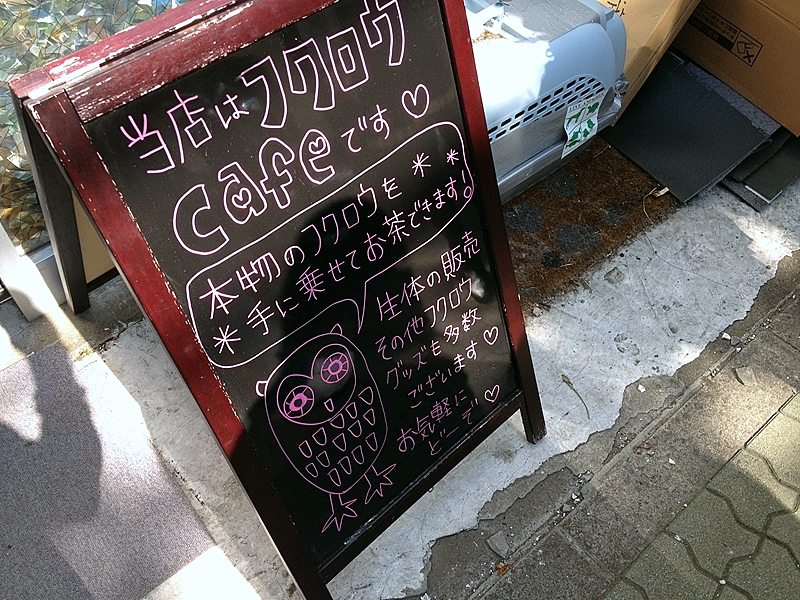 当店はフクロウ
cafeです♡
本物のフクロウを＊＊
＊手に乗せてお茶できます!
生体の販売
その他フクロウ
グッズも多数
ございます♡
お気軽に
どーぞ♡